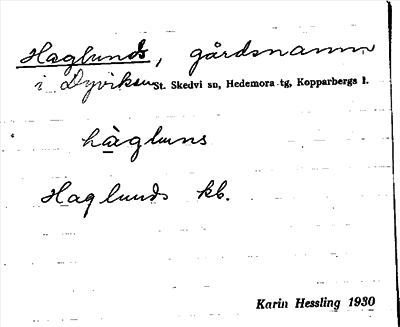 Haglunds, gårdsnamn
i Dyviksn St. Skedvi sn, Hedemora tg, Kopparbergs l.
hàgluns
Haglunds kb.
Karin Hessling 1930